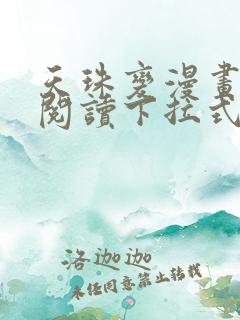 天珠變漫畫
閱讀下拉式
洛迦迦
未经同意禁止转载